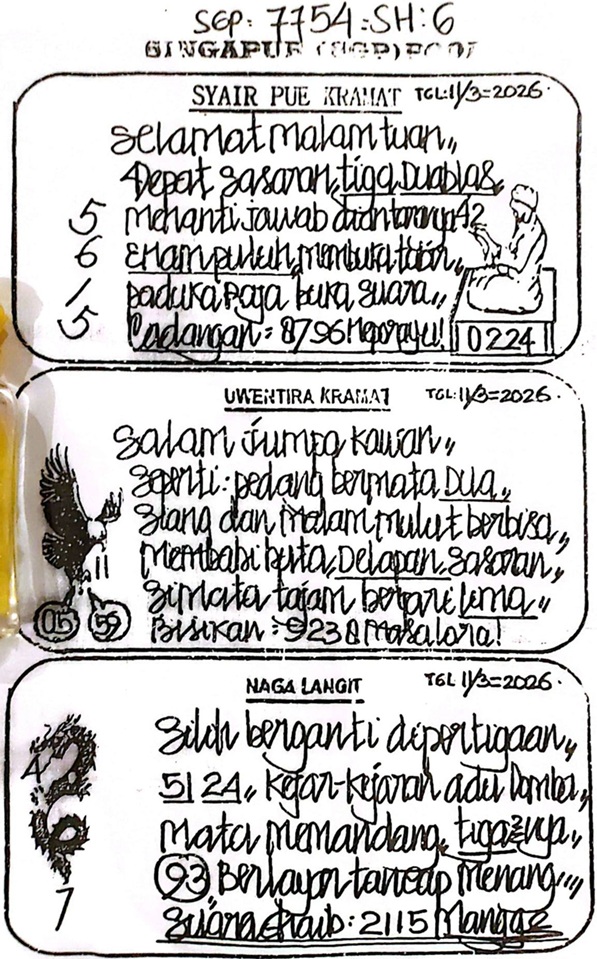 SEP: 7754 : SH: 6
SINGAPUR (SGP) POOL
SYAIR PUE KRAMAT TGL: 11/3=2026.
Selamat malam tuan,,
Depat sasaran, tiga Duablas,
5 Menanti jawab diantaranya 42
6 Enam puluh, membuka tabir,
1 paduka Raja buka suara,,
5 Cadangan = 8796
0224
UWENTIRA KRAMAT TGL: 11/3=2026.
Salam jumpa kawan,,
Seperti: pedang bermata Dua,,
Siang dan Malam mulut berbisa,,
Membabi buta, Delapan sasaran,,
Simata tajam berpari Lima,,
05 59 Bisikan = 9238
NAGA LANGIT TGL 11/3=2026.
Silih berganti dipertigaan,,
4 26 51 24,, Kejar-kejaran adu Domba,
Mata memandang, tiga2nya,,
93 Berlayar tancap Menang,,,
7 Suara Ghaib: 2115